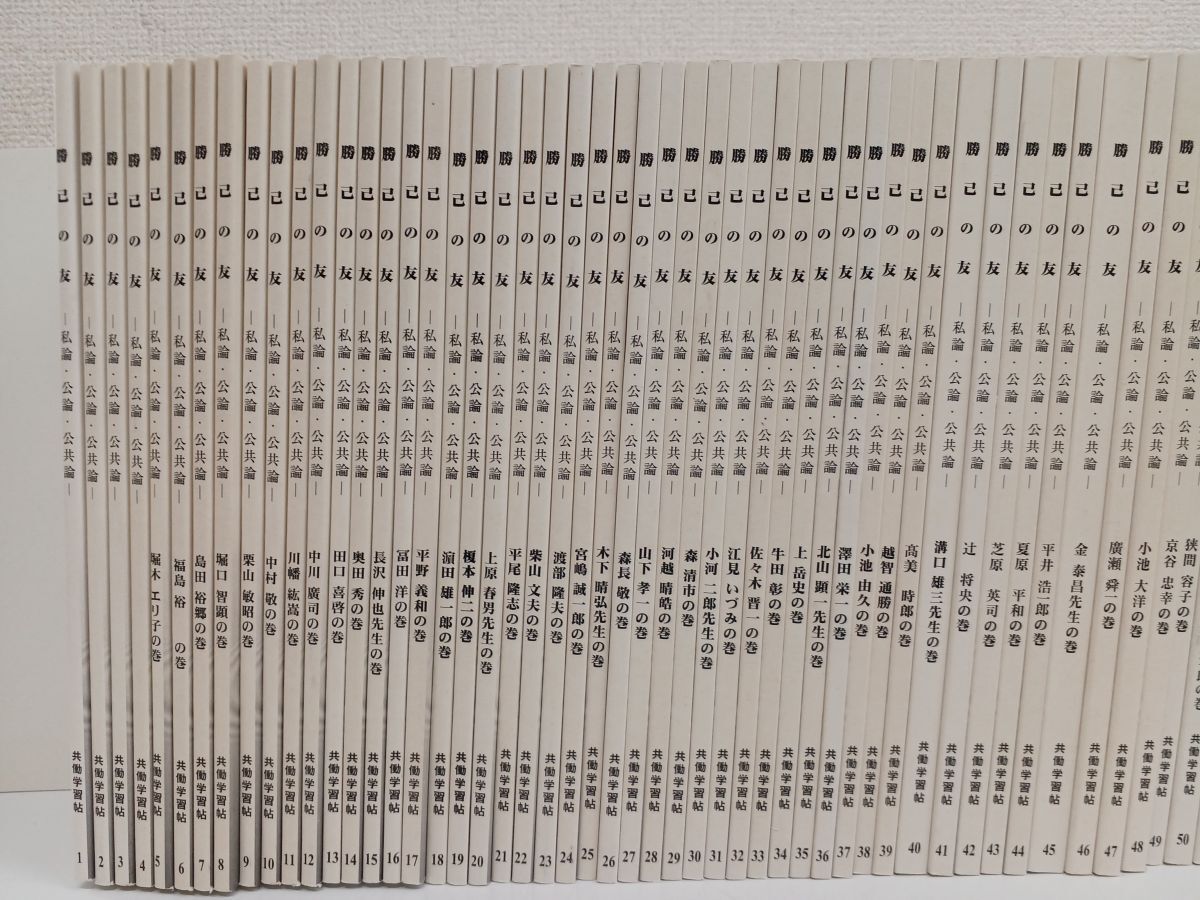 勝己の友 ―私論・公論・公共論― 共働学習帖 1
勝己の友 ―私論・公論・公共論― 共働学習帖 2
勝己の友 ―私論・公論・公共論― 共働学習帖 3
勝己の友 ―私論・公論・公共論― 共働学習帖 4
勝己の友 ―私論・公論・公共論― 堀木 エリ子の巻 共働学習帖 5
勝己の友 ―私論・公論・公共論― 福島 裕 の巻 共働学習帖 6
勝己の友 ―私論・公論・公共論― 島田 裕郷の巻 共働学習帖 7
勝己の友 ―私論・公論・公共論― 堀口 智顕の巻 共働学習帖 8
勝己の友 ―私論・公論・公共論― 栗山 敏昭の巻 共働学習帖 9
勝己の友 ―私論・公論・公共論― 中村 敬の巻 共働学習帖 10
勝己の友 ―私論・公論・公共論― 川幡 紘嵩の巻 共働学習帖 11
勝己の友 ―私論・公論・公共論― 中川 廣司の巻 共働学習帖 12
勝己の友 ―私論・公論・公共論― 田口 喜啓の巻 共働学習帖 13
勝己の友 ―私論・公論・公共論― 奥田 秀の巻 共働学習帖 14
勝己の友 ―私論・公論・公共論― 長沢 伸也先生の巻 共働学習帖 15
勝己の友 ―私論・公論・公共論― 冨田 洋の巻 共働学習帖 16
勝己の友 ―私論・公論・公共論― 平野 義和の巻 共働学習帖 17
勝己の友 ―私論・公論・公共論― 濵田 雄一郎の巻 共働学習帖 18
勝己の友 ―私論・公論・公共論― 榎本 伸二の巻 共働学習帖 19
勝己の友 ―私論・公論・公共論― 上原 春男先生の巻 共働学習帖 20
勝己の友 ―私論・公論・公共論― 平尾 隆志の巻 共働学習帖 21
勝己の友 ―私論・公論・公共論― 柴山 文夫の巻 共働学習帖 22
勝己の友 ―私論・公論・公共論― 渡部 隆夫の巻 共働学習帖 23
勝己の友 ―私論・公論・公共論― 宮嶋 誠一郎の巻 共働学習帖 24
勝己の友 ―私論・公論・公共論― 木下 晴弘先生の巻 共働学習帖 25
勝己の友 ―私論・公論・公共論― 森長 敬の巻 共働学習帖 26
勝己の友 ―私論・公論・公共論― 山下 孝一の巻 共働学習帖 27
勝己の友 ―私論・公論・公共論― 河越 晴皓の巻 共働学習帖 28
勝己の友 ―私論・公論・公共論― 森 清市の巻 共働学習帖 29
勝己の友 ―私論・公論・公共論― 小河 二郎先生の巻 共働学習帖 30
勝己の友 ―私論・公論・公共論― 江見 いづみの巻 共働学習帖 31
勝己の友 ―私論・公論・公共論― 佐々木 晋一の巻 共働学習帖 32
勝己の友 ―私論・公論・公共論― 牛田 彰の巻 共働学習帖 33
勝己の友 ―私論・公論・公共論― 上 岳史の巻 共働学習帖 34
勝己の友 ―私論・公論・公共論― 北山 顕一先生の巻 共働学習帖 35
勝己の友 ―私論・公論・公共論― 澤田 栄一の巻 共働学習帖 36
勝己の友 ―私論・公論・公共論― 小池 由久の巻 共働学習帖 37
勝己の友 ―私論・公論・公共論― 越智 通勝の巻 共働学習帖 38
勝己の友 ―私論・公論・公共論― 高美 時郎の巻 共働学習帖 39
勝己の友 ―私論・公論・公共論― 溝口 雄三先生の巻 共働学習帖 40
勝己の友 ―私論・公論・公共論― 辻 将央の巻 共働学習帖 41
勝己の友 ―私論・公論・公共論― 芝原 英司の巻 共働学習帖 42
勝己の友 ―私論・公論・公共論― 夏原 平和の巻 共働学習帖 43
勝己の友 ―私論・公論・公共論― 平井 浩一郎の巻 共働学習帖 44
勝己の友 ―私論・公論・公共論― 金 泰昌先生の巻 共働学習帖 45
勝己の友 ―私論・公論・公共論― 廣瀬 舜一の巻 共働学習帖 46
勝己の友 ―私論・公論・公共論― 小池 大洋の巻 共働学習帖 47
勝己の友 ―私論・公論・公共論― 京谷 忠幸の巻 共働学習帖 48
勝己の友 ―私論・公論・公共論― 狭間 容子の巻 共働学習帖 49
の巻 共働学習帖 50